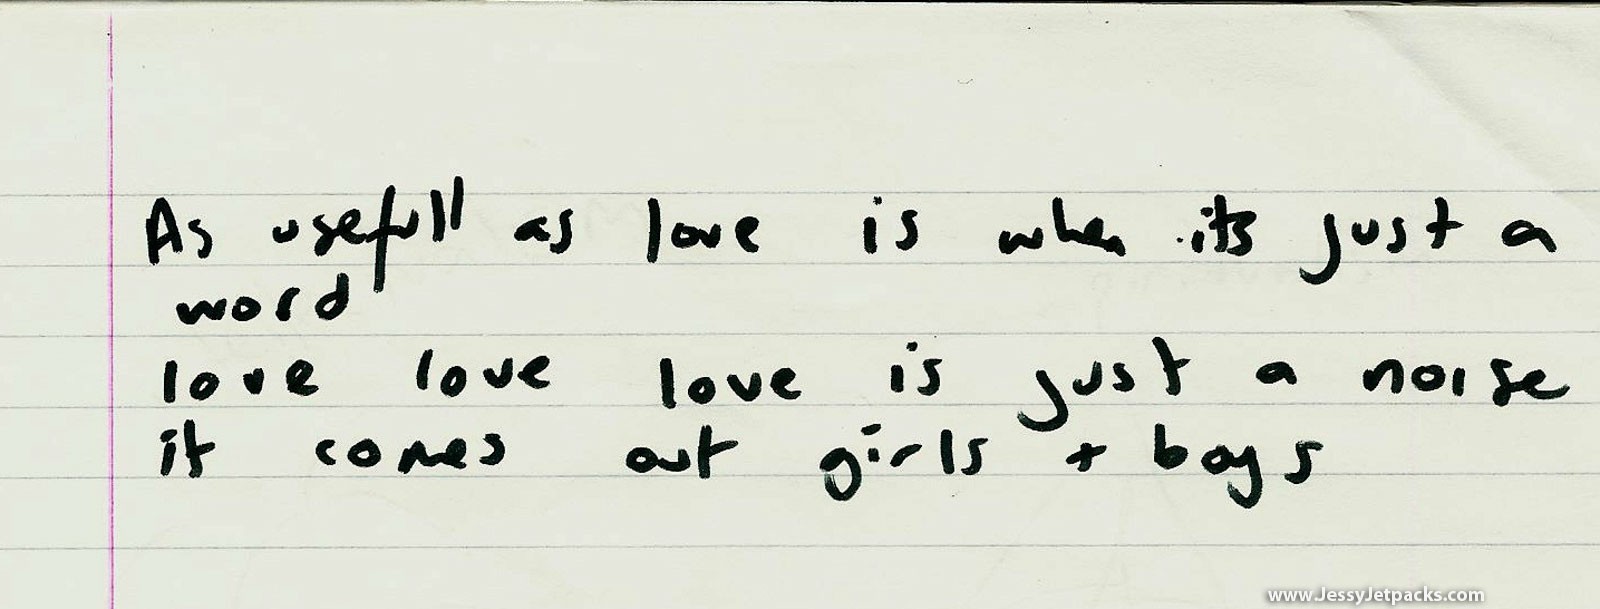 As usefull as love is when its just a
word
love love love is just a noise
it comes out girls + boys
www.JessyJetpacks.com